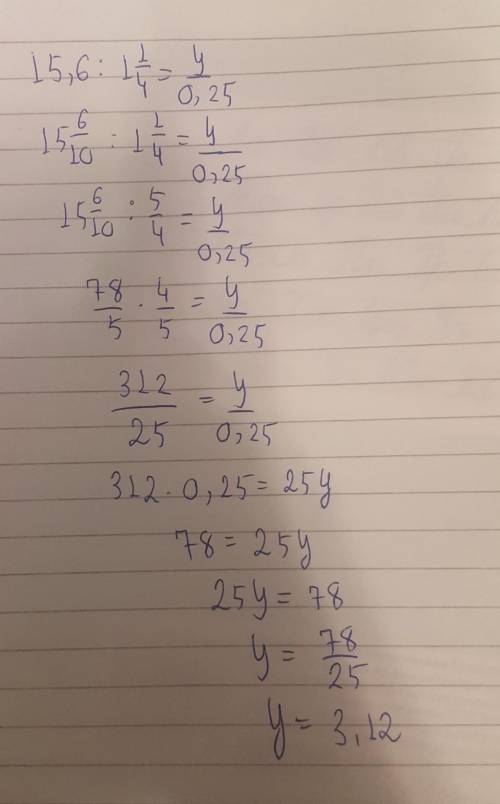 15,6 : 1 1/4 = y/0,25
15 6/10 : 1 1/4 = y/0,25
15 6/10 : 5/4 = y/0,25
78/5 · 4/5 = y/0,25
312/25 = y/0,25
312 · 0,25 = 25y
78 = 25y
25y = 78
y = 78/25
y = 3,12